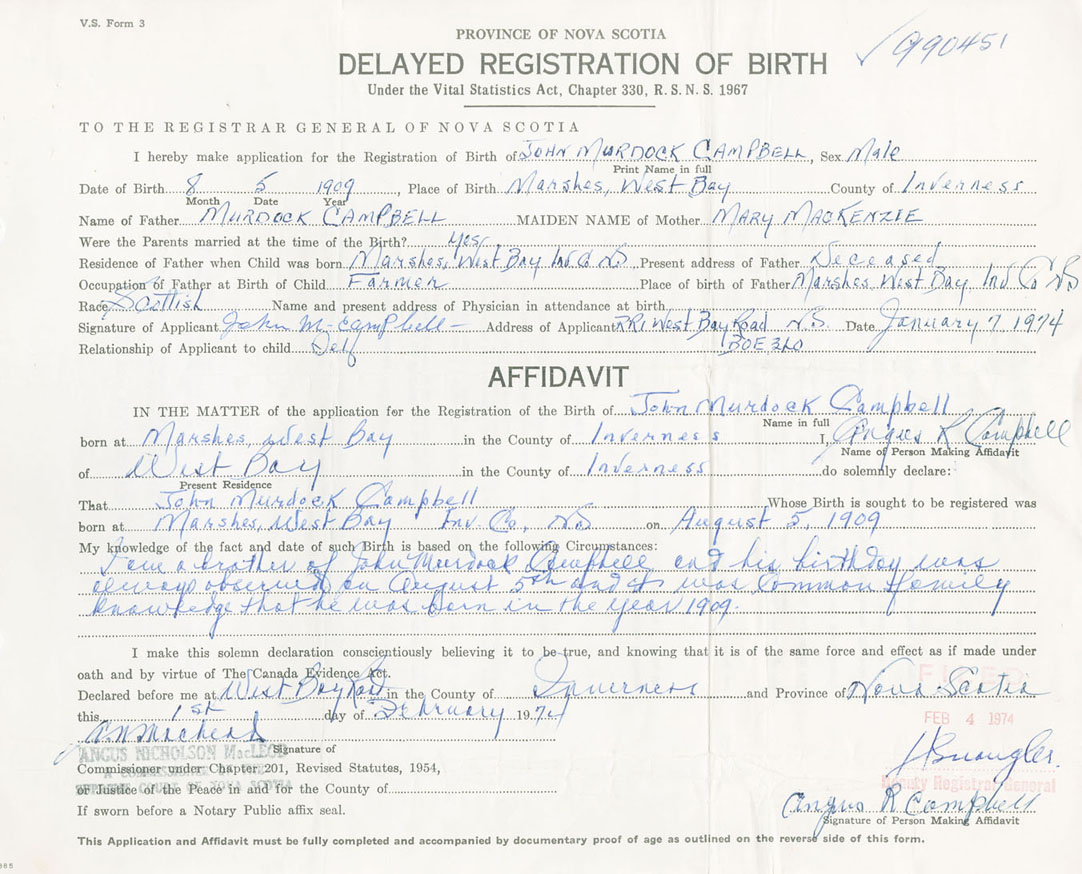 V.S. Form 3
990451
PROVINCE OF NOVA SCOTIA
DELAYED REGISTRATION OF BIRTH
Under the Vital Statistics Act, Chapter 330, R. S. N. S. 1967
TO THE REGISTRAR GENERAL OF NOVA SCOTIA
I hereby make application for the Registration of Birth of JOHN MURDOCK CAMPBELL, Sex Male
Print Name in full
Date of Birth 8 5 1909, Place of Birth Marshes, West Bay County of Inverness
Month Date Year
Name of Father MURDOCK CAMPBELL MAIDEN NAME of Mother MARY MACKENZIE
Were the Parents married at the time of the Birth? yes
Residence of Father when Child was born Marshes, West Bay Inv. Co NS Present address of Father Deceased
Occupation of Father at Birth of Child Farmer Place of birth of Father Marshes West Bay Inv Co NS
Race Scottish Name and present address of Physician in attendance at birth
Signature of Applicant John M. Campbell Address of Applicant RR1 West Bay Road N.S. Date January 7 1974
Relationship of Applicant to child Self BOE 3L0
AFFIDAVIT
IN THE MATTER of the application for the Registration of the Birth of John Murdock Campbell
Name in full
born at Marshes, West Bay in the County of Inverness I, Angus R Campbell
Name of Person Making Affidavit
of West Bay in the County of Inverness do solemnly declare:
Present Residence
That John Murdock Campbell Whose Birth is sought to be registered was
born at Marshes, West Bay Inv. Co, NS on August 5, 1909
My knowledge of the fact and date of such Birth is based on the following Circumstances:
I am a brother of John Murdock Campbell and his birthday was
always observed on August 5th and it was common family
knowledge that he was born in the year 1909.
I make this solemn declaration conscientiously believing it to be true, and knowing that it is of the same force and effect as if made under
oath and by virtue of The Canada Evidence Act.
Declared before me at West Bay Road in the County of Inverness and Province of Nova Scotia
FILED
this 1st day of February 1974
FEB 4 1974
A N MacLeod
ANGUS NICHOLSON MacLEOD
Signature of
Commissioner under Chapter 201, Revised Statutes, 1954,
SUPREME COURT OF NOVA SCOTIA
Deputy Registrar General
or Justice of the Peace in and for the County of
Angus R Campbell
If sworn before a Notary Public affix seal.
Signature of Person Making Affidavit
This Application and Affidavit must be fully completed and accompanied by documentary proof of age as outlined on the reverse side of this form.